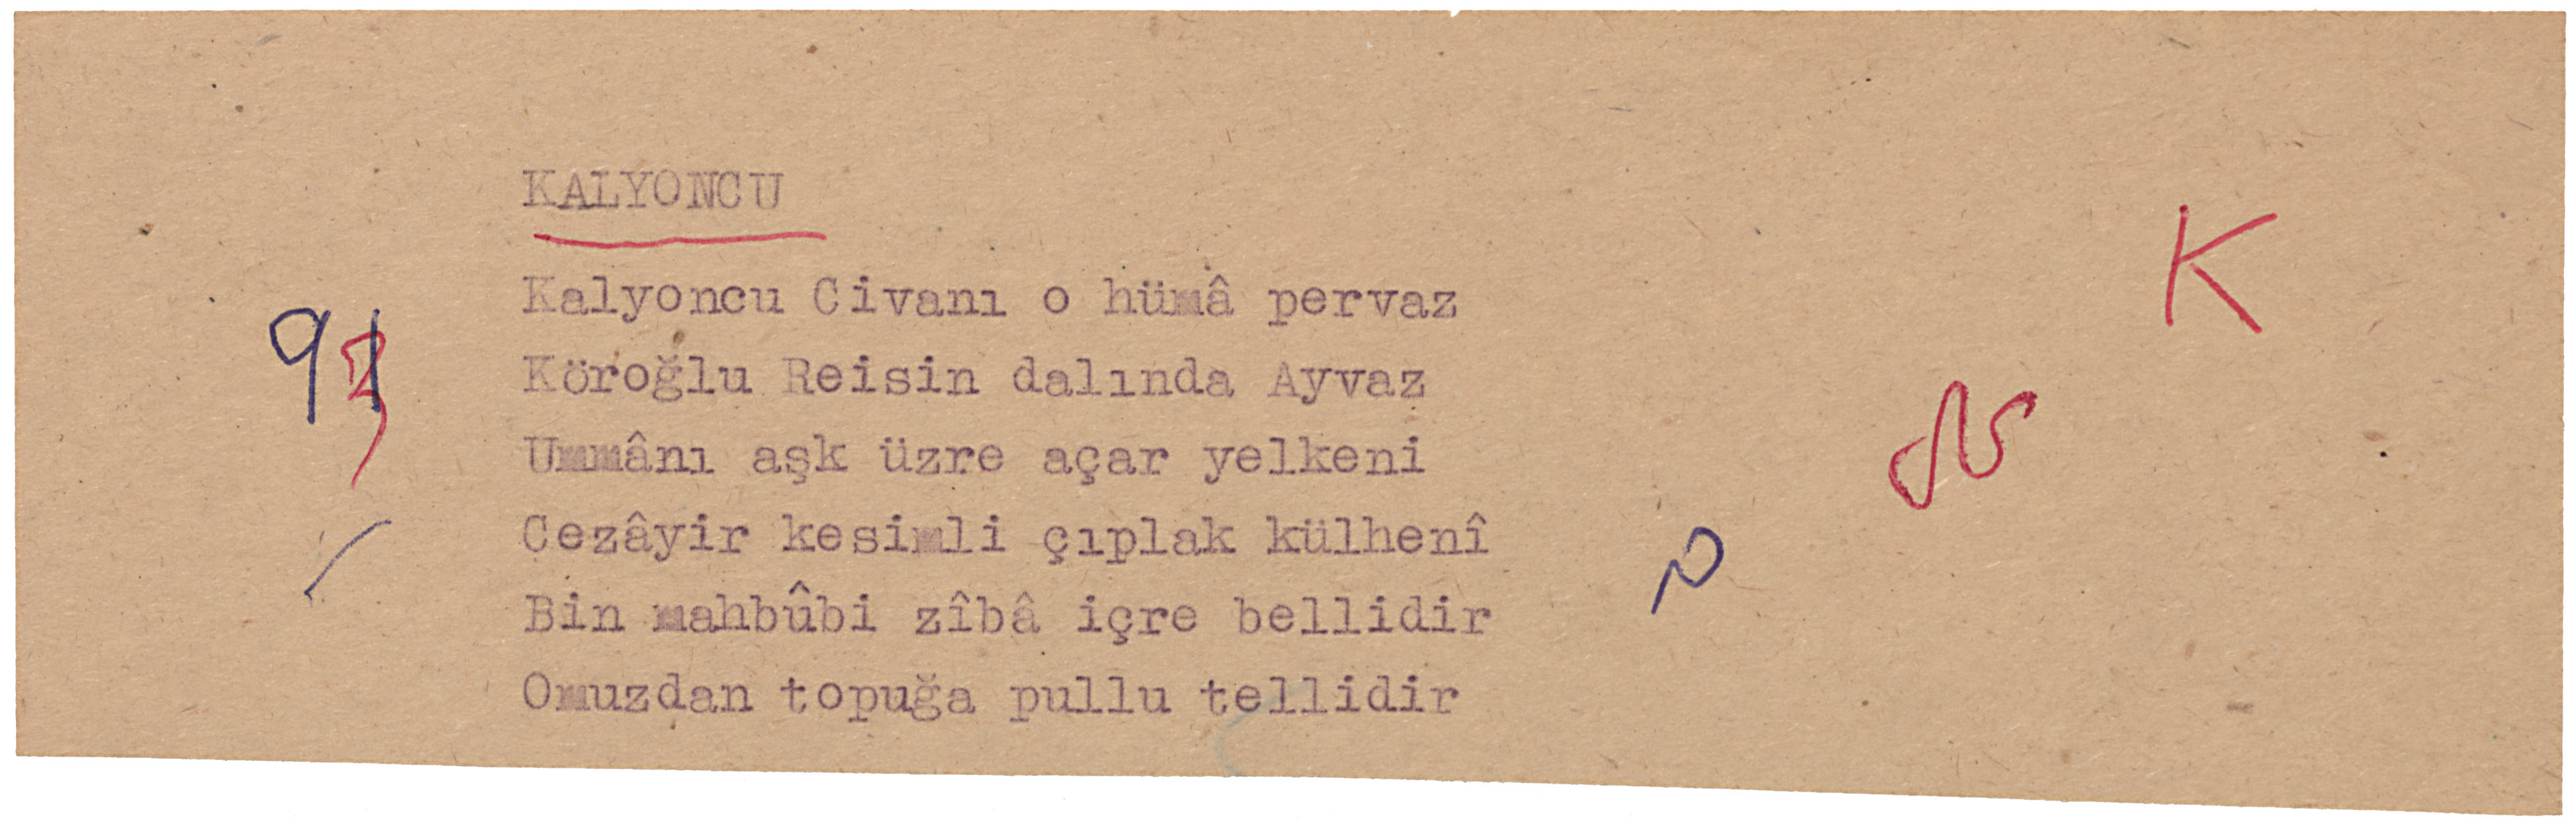 KALYONCU
K
Kalyoncu Civanı o hümâ pervaz
91
Köroğlu Reisin dalında Ayvaz
Ummânı aşk üzre açar yelkeni
Cezâyir kesimli çıplak külhenî
Bin mahbûbi zîbâ içre bellidir
Omuzdan topuğa pullu tellidir